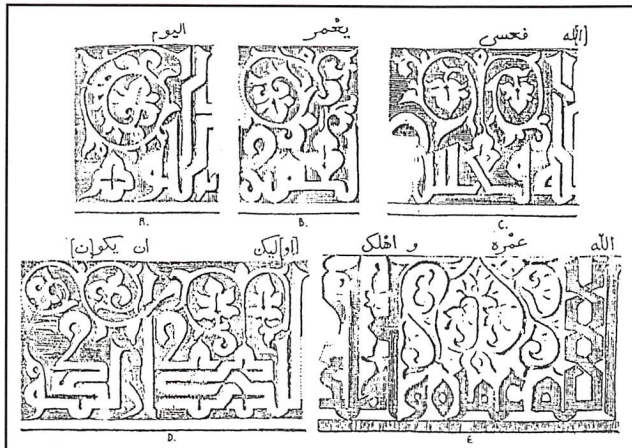 اليوم
يعْمر
[الله فعسى
A.
B.
C.
[او]ليك ان يكو[ن]
الله عمْره و اهْلك
D.
E.